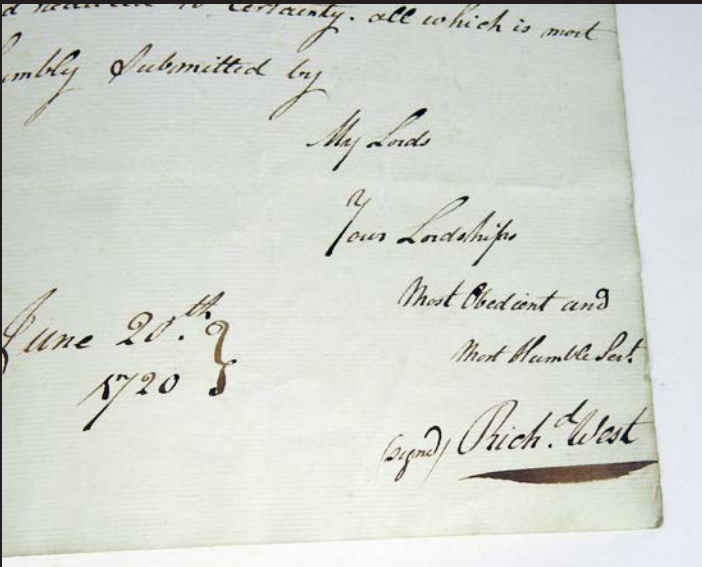 d reduced to Certainty. all which is most
umbly Submitted by
My Lords
Your Lordships
Most Obedient and
Most Humble Sert.
June 20.th
1720
(signd) Rich.d West